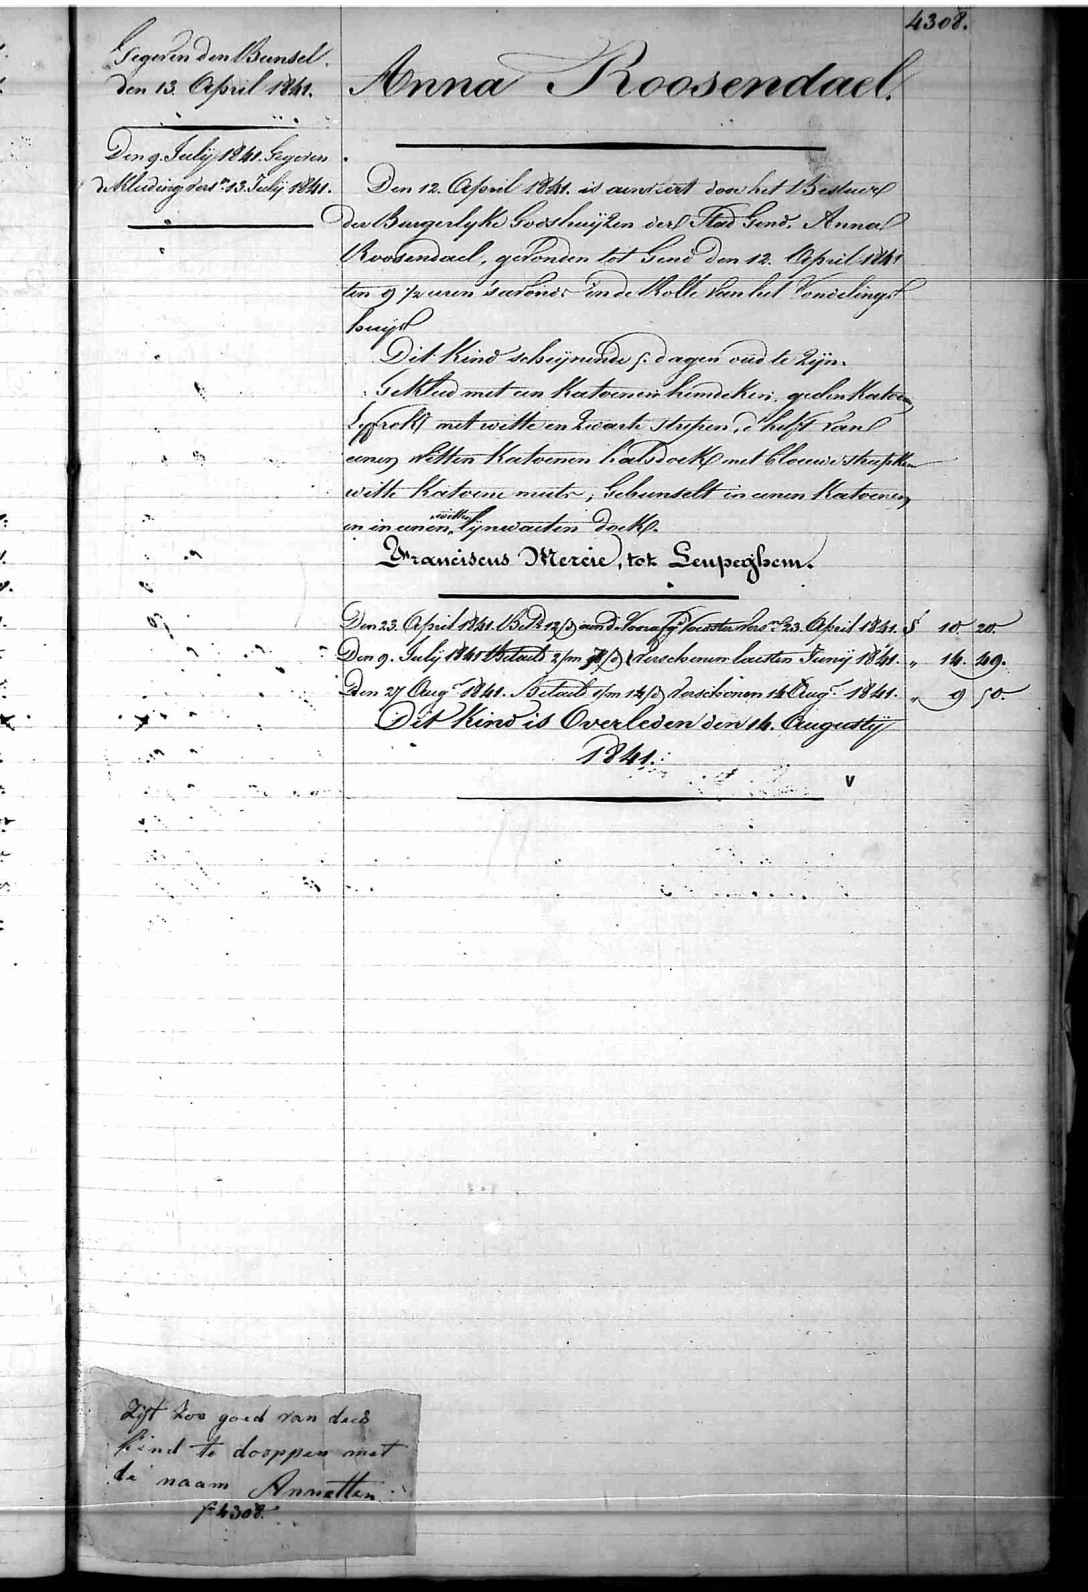 4308.
Gegeven den Bunsel.
den 13. April 1841.
Den 9. Julij 1841. Gegeven
de Kleeding vers.n 13. Julij 1841.
Anna Roosendael.
Den 12. April 1841. is aenveert door het Bestuer
der Burgerlyke Godshuijzen der Stad Gend, Anna
Roosendael, gevonden tot Gend den 12. April 1841
ten 9 1/2 uren s'avonds in de Rolle van het Vondelings
huijs
Dit Kind schijnende 5. dagen oud te Zijn.
Gekleed met een Katoenen hemdeken, geelen Katoen
Lyfrok met witte en Zwarte strepen, d'helft van
eenen witten Katoenen halsdoek met blauwe streepken
witte Katoene muts, Gebunselt in eenen Katoenen
en in eenen witten lijnwaeten doek.
Franciscus Mercie, tot Leupeghem.
Den 23. April 1841. Bet.d 12/3 aen de Voorafg.e Voester vers.n 23. April 1841. f 10. 20.
Den 9. Julij 1841 Betaeld 2/m 18/3 Verschenen laesten Junij 1841. „ 14. 49.
Den 27 Aug.t 1841. Betaeld 1/m 14/3 Verschenen 14 Aug.t 1841. „ 9 50.
Dit Kind is Overleden den 14. Augusty
1841.
V
Zijt zoo goed van dees
kind te dooppen met
de naam Annetten
f° 4308.